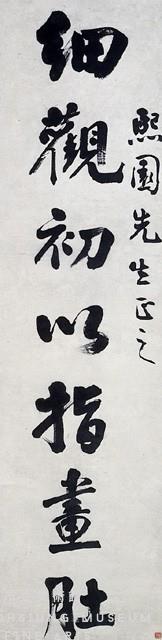 熙園先生正之
細觀初以指畫肚
MUSEUM